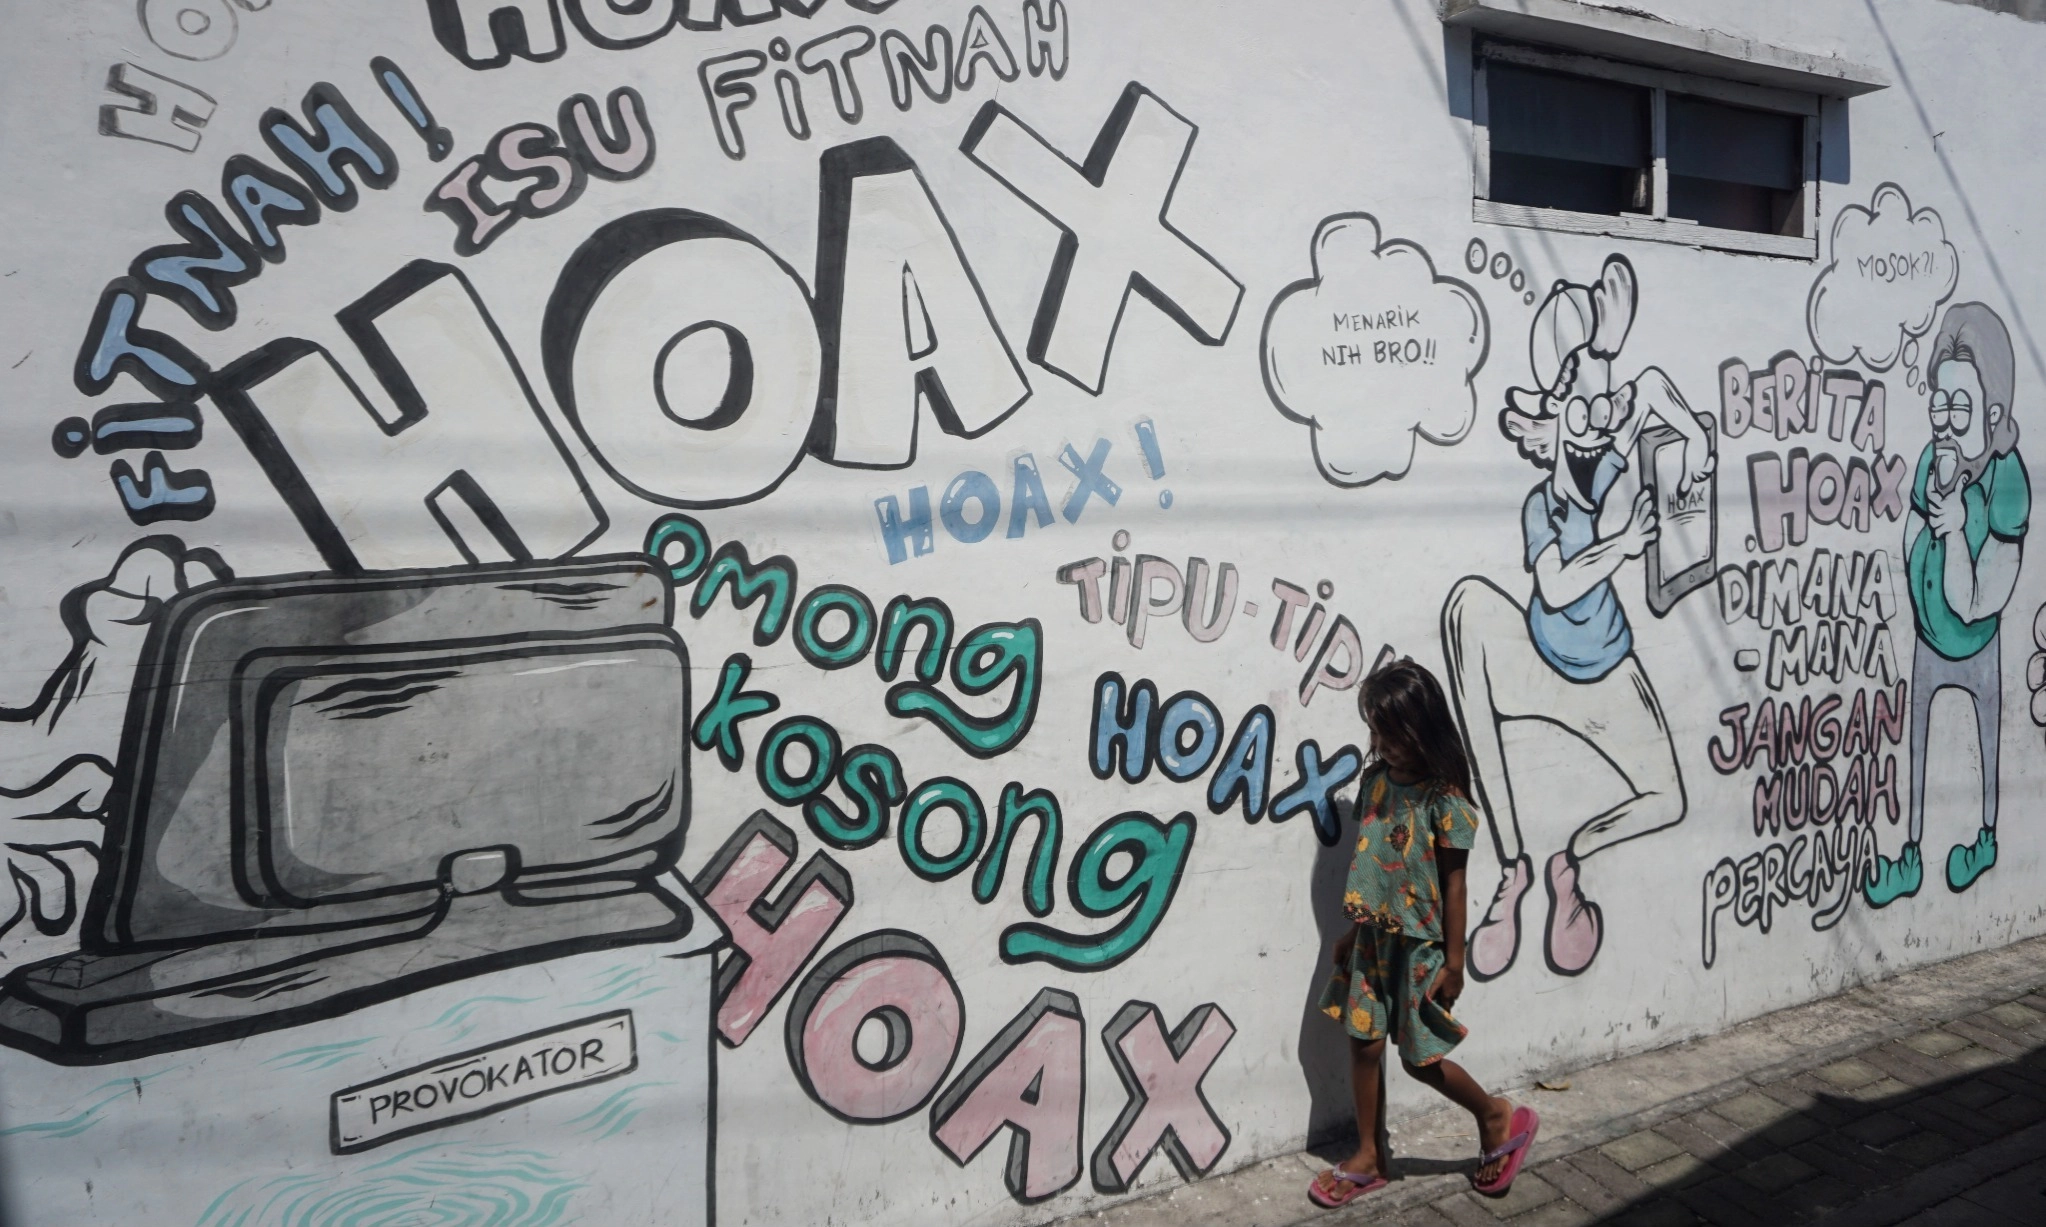 HOAX
FITNAH!
ISU FITNAH
HOAX
HOAX!
TIPU-TIPU
OMONG
KOSONG
HOAX
HOAX
PROVOKATOR
MENARIK
NIH BRO!!
HOAX
MOSOK?!
BERITA
HOAX
DIMANA
-MANA
JANGAN
MUDAH
PERCAYA